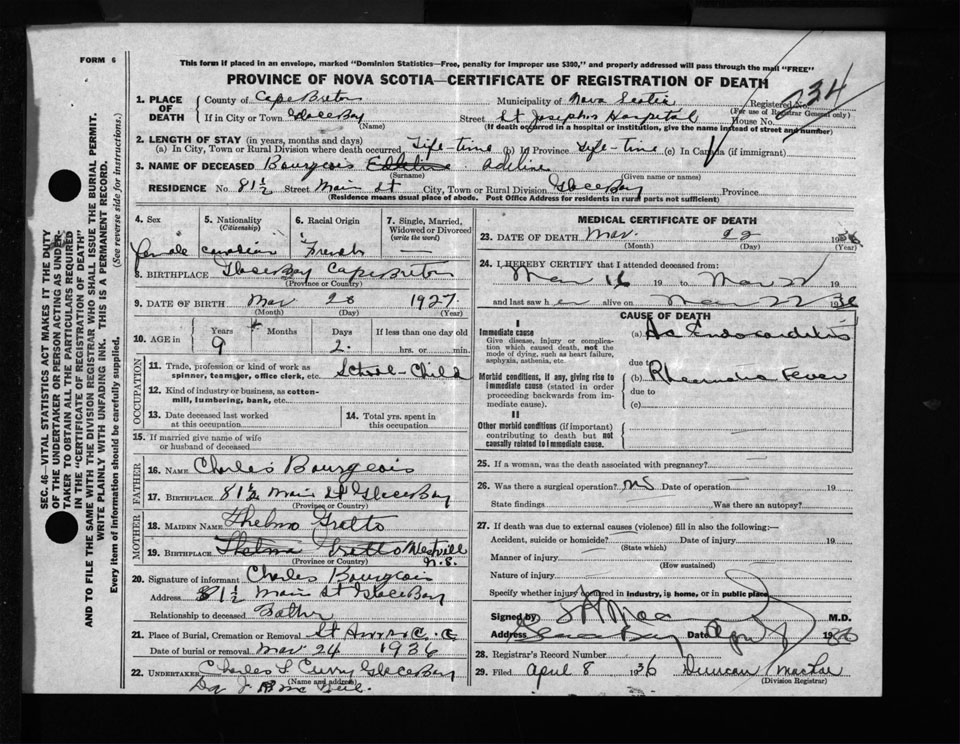 FORM 6
This form if placed in an envelope, marked "Dominion Statistics—Free, penalty for improper use $300," and properly addressed will pass through the mail "FREE"
PROVINCE OF NOVA SCOTIA—CERTIFICATE OF REGISTRATION OF DEATH
SEC. 46—VITAL STATISTICS ACT MAKES IT THE DUTY
OF THE UNDERTAKER OR PERSON ACTING AS UNDER-
TAKER TO OBTAIN ALL THE PARTICULARS REQUIRED
IN THE "CERTIFICATE OF REGISTRATION OF DEATH"
AND TO FILE THE SAME WITH THE DIVISION REGISTRAR WHO SHALL ISSUE THE BURIAL PERMIT.
WRITE PLAINLY WITH UNFADING INK. THIS IS A PERMANENT RECORD.
Every item of information should be carefully supplied. (See reverse side for instructions.)
1. PLACE OF DEATH County of Cape Breton Municipality of Nova Scotia Registered No. 34
(For use of Registrar General only)
If in City or Town Glace Bay Street St Josephs Hospital House No.
(Name) (If death occurred in a hospital or institution, give the name instead of street and number)
2. LENGTH OF STAY (in years, months and days)
(a) In City, Town or Rural Division where death occurred, Life-time (b) In Province Life-time (c) In Canada (if immigrant)
3. NAME OF DECEASED Bourgeois Adeline
(Surname) (Given name or names)
RESIDENCE No 81½ Street Main St City, Town or Rural Division Glace Bay Province
(Residence means usual place of abode. Post Office Address for residents in rural parts not sufficient)
4. Sex female
5. Nationality (Citizenship) Canadian
6. Racial Origin French
7. Single, Married, Widowed or Divorced (write the word)
8. BIRTHPLACE Glace Bay Cape Breton
(Province or Country)
9. DATE OF BIRTH Mar 20 1927
(Month) (Day) (Year)
10. AGE in Years 9 Months Days 2 If less than one day old hrs. or min.
OCCUPATION
11. Trade, profession or kind of work as spinner, teamster, office clerk, etc. School-Child
12. Kind of industry or business, as cotton-mill, lumbering, bank, etc.
13. Date deceased last worked at this occupation
14. Total yrs. spent in this occupation
15. If married give name of wife or husband of deceased
FATHER
16. NAME Charles Bourgeois
17. BIRTHPLACE 81½ Main St Glace Bay
(Province or Country)
MOTHER
18. MAIDEN NAME Thelma Gratto
19. BIRTHPLACE Thelma Gratto Westvill N.S.
(Province or Country)
20. Signature of informant Charles Bourgeois
Address 81½ Main St Glace Bay
Relationship to deceased Father
21. Place of Burial, Cremation or Removal St Anns C.
Date of burial or removal Mar 24 1936
22. UNDERTAKER Charles L Curry Glace Bay
(Name and address)
MEDICAL CERTIFICATE OF DEATH
23. DATE OF DEATH Mar. 22 1936
(Month) (Day) (Year)
24. I HEREBY CERTIFY that I attended deceased from:
Mar 16 19 to Mar 22 19
and last saw her alive on Mar 22 1936
CAUSE OF DEATH
I
Immediate cause
Give disease, injury or complication which caused death, not the mode of dying, such as heart failure, asphyxia, asthenia, etc.
(a) Ac Endocarditis
due to
Morbid conditions, if any, giving rise to immediate cause (stated in order proceeding backwards from immediate cause).
(b) Rheumatic Fever
due to
(c)
II
Other morbid conditions (if important) contributing to death but not causally related to immediate cause.
25. If a woman, was the death associated with pregnancy?
26. Was there a surgical operation? no Date of operation 19
State findings Was there an autopsy?
27. If death was due to external causes (violence) fill in also the following:—
Accident, suicide or homicide? Date of injury 19
(State which)
Manner of injury
(How sustained)
Nature of injury
Specify whether injury occurred in industry, in home, or in public place
Signed by M.D.
Address Glace Bay Date April 1936
28. Registrar's Record Number
29. Filed April 8 1936 Duncan
(Division Registrar)